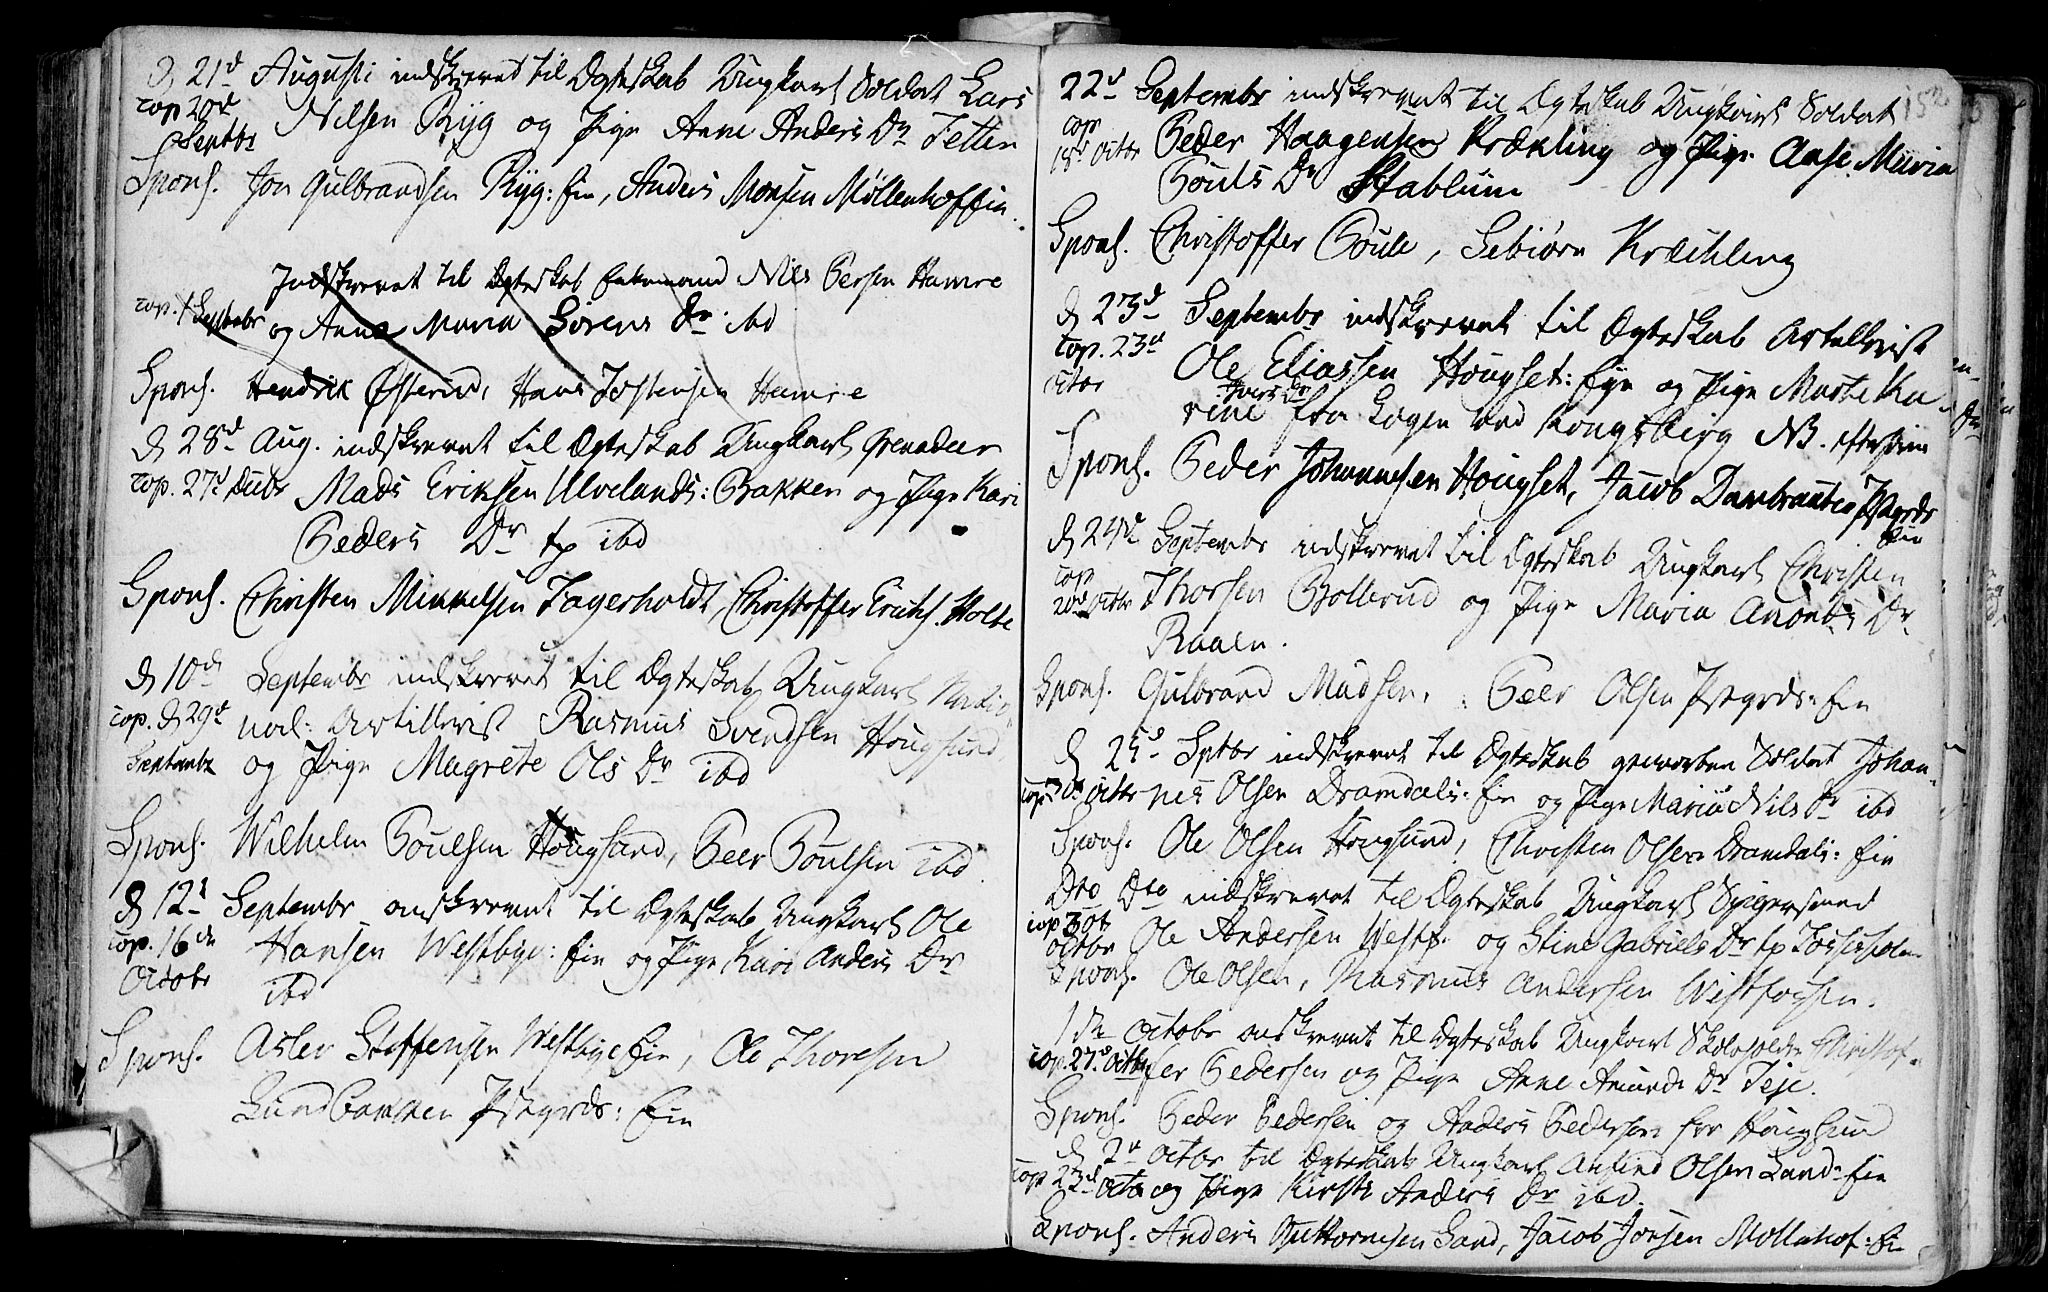 D 21d Augusti indskrevet til Ægteskab Ungkarl Soldat Lars
cop 20d Septbr
Nilsen Ryg og Pige Anne Anders Dr Tetten
Spons. Jon Gulbrandsen Ryg: Eie, Anders Monsen Møllenhof Eie.
Indskrevet til Ægteskab Enkemand Nils Persen Hamre
cop. 1 Septebr
og Anne Maria Sørens Dr ibd
Spons. Hendrik Østerud, Hans Jostensen Hamre
D 28d Aug. indskrevet til Ægteskab Ungkarl Grenadeer
cop. 27d Mads Eriksen Ulvelands: Bakken og Pige Kari
Peders Dr tp ibd
Spons. Christen Mikkelsen Fagerholdt, Christoffer Erichs. Holte
D 10d Septembr indskrevet til Ægteskab Ungkarl Natio-
cop. D 29d Septembr
nal: Artillerist Rasmus Svendsen Hougsund
og Pige Magrete Ols Dr ibd
Spons. Wilhelm Poulsen Hougsund, Peer Poulsen ibd.
D 12d Septembr anskrevet til Ægteskab Ungkarl Ole
cop. 16de Octobr
Hansen Westbye: Eie og Pige Kari Anders Dr
ibd
Spons. Aslev Steffensen Westbye Eie, Ole Thoresen
Lundbakken Pstgrds: Eie
152
22d Septembr indskrevet til Ægteskab Ungkarl Soldat
cop 18d Octbr
Peder Haagensen Krækling og Pige Anse Maria
Pouls Dr Stablum
Spons. Christoffer Poule, Lebiørn Krækling
D 23d Septembr indskrevet til Ægteskab Artellerist
cop. 23d Octbr
Ole Eliassen Hougset: Eye og Pige Marte Ka-
rine Ivers Dr fra Logen ved Kongsberg NB.
Spons. Peder Johannesen Hougset, Jacob Pstgrds
Eie
D 24d Septembr indskrevet til Ægteskab Ungkarl Christen
cop 20d Octbr
Thorsen Bollerud og Pige Maria Dr
Raaen.
Spons. Gulbrand Madsen, Peer Olsen Pstgrds: Eie
D 25d Septbr indskrevet til Ægteskab gevorben Soldat Johan-
cop. Octbr
nes Olsen Dramdals: Eie og Pige Maria Nils Dr ibd
Spons. Ole Olsen Hougsund, Christen Olsen Dramdals: Eie
Dto Dto indskrevet til Ægteskab Ungkarl Spigersmed
cop 30te Octbr
Ole Andersen Westf. og Stine Gabriels Dr tp
Spons. Ole Olsen, Rasmus Andersen Westfossen.
1ste Octobr anskrevet til Ægteskab Ungkarl Skoleholder Christof-
cop. 27d Octbr
fer Pedersen og Pige Anne Amunds Dr Teje.
Spons. Peder Pedersen og Anders Pedersen fra Hougsund
D 2d Octbr til Ægteskab Ungkarl Anfind Olsen Sand: Eie
cop 23d Octbr og Pige Kirsti Anders Dr ibd.
Spons. Anders Guttormsen Sand, Jacob Jonsen Møllenhof: Eie